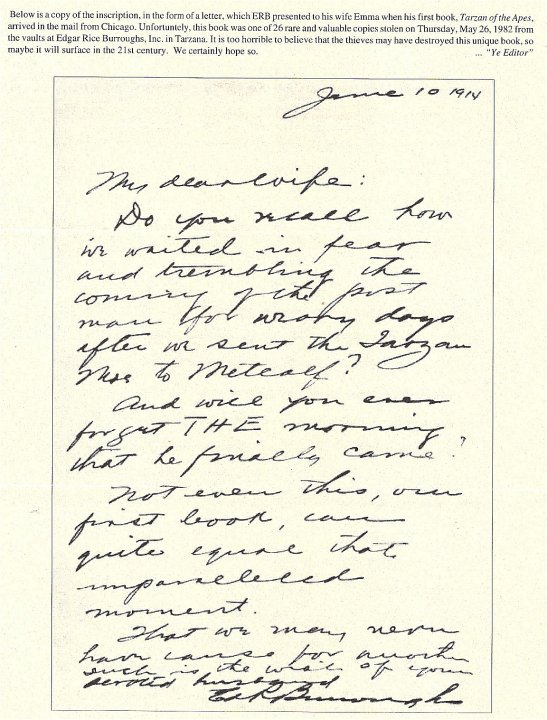 Below is a copy of the inscription, in the form of a letter, which ERB presented to his wife Emma when his first book, Tarzan of the Apes,
arrived in the mail from Chicago. Unfortuntely, this book was one of 26 rare and valuable copies stolen on Thursday, May 26, 1982 from
the vaults at Edgar Rice Burroughs, Inc. in Tarzana. It is too horrible to believe that the thieves may have destroyed this unique book, so
maybe it will surface in the 21st century. We certainly hope so.
... "Ye Editor"
June 10 1914
My dear wife:
Do you recall how
we waited in fear
and trembling the
coming of the post
man for many days
after we sent the Tarzan
Mss to Metcalf?
And will you ever
forget THE morning
that he finally came?
Not even this, our
first book, can
quite equal that
unparalleled
moment.
That we may never
have cause for another
such is the wish of your
devoted husband
Ed R Burroughs